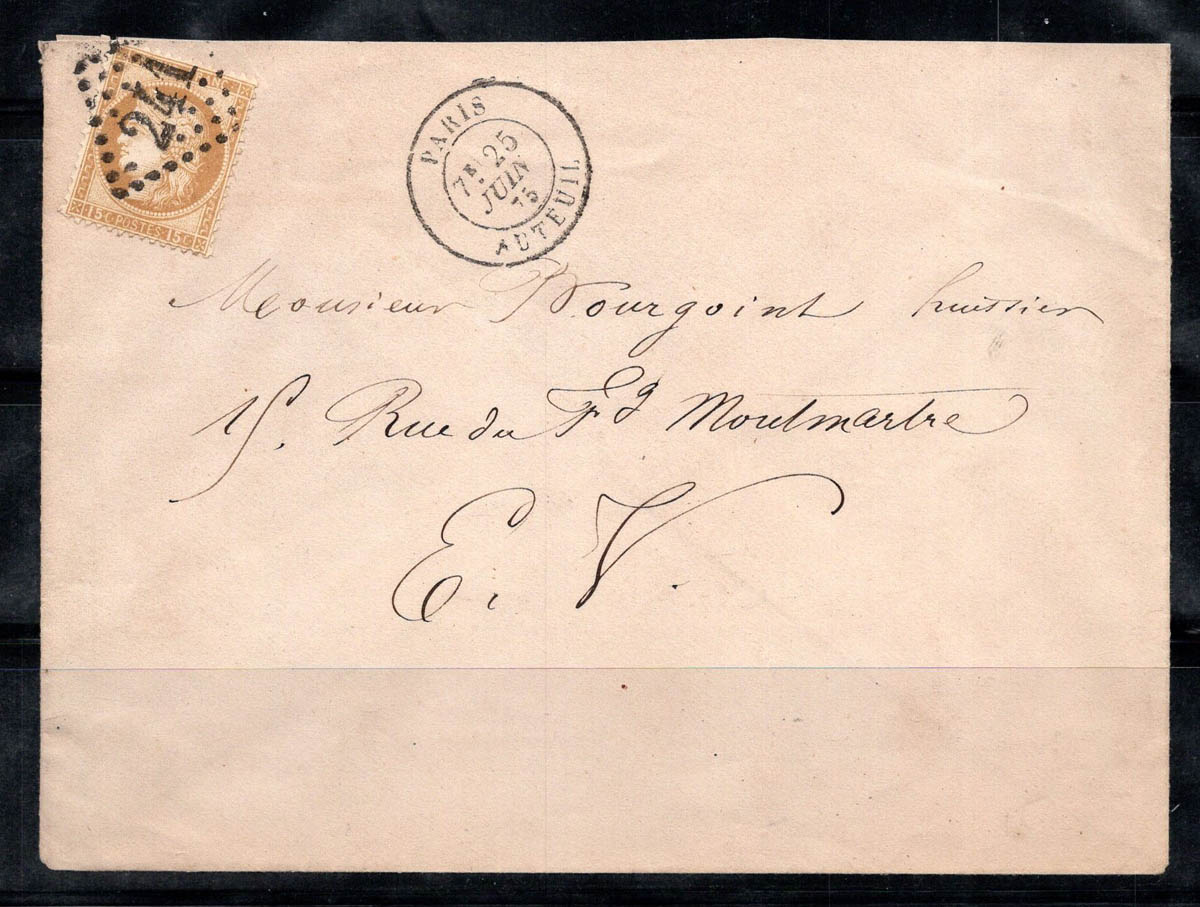 241
15 C. POSTES. 15 C
PARIS
7E 25
JUIN
75
AUTEUIL
Monsieur Bourgoint huissier
15. Rue du Fg Montmartre
E. V.